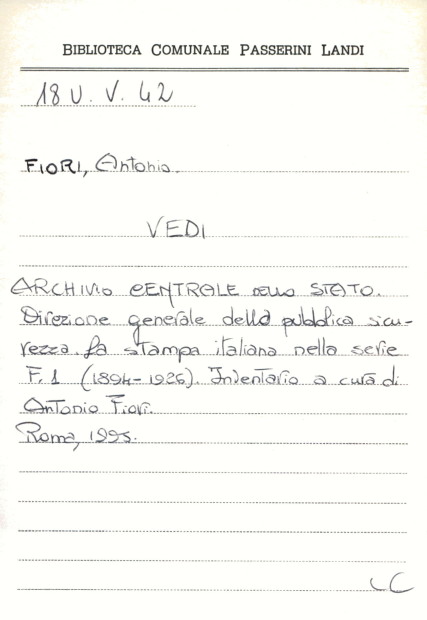 BIBLIOTECA COMUNALE PASSERINI LANDI
18 U. V. 42
FIORI, Antonio.
VEDI
ARCHIVIO CENTRALE DELLO STATO.
Direzione generale della pubblica sicu-
rezza. La stampa italiana nella serie
F. 1 (1894-1926). Inventario a cura di
Antonio Fiori.
Roma, 1995.
LC